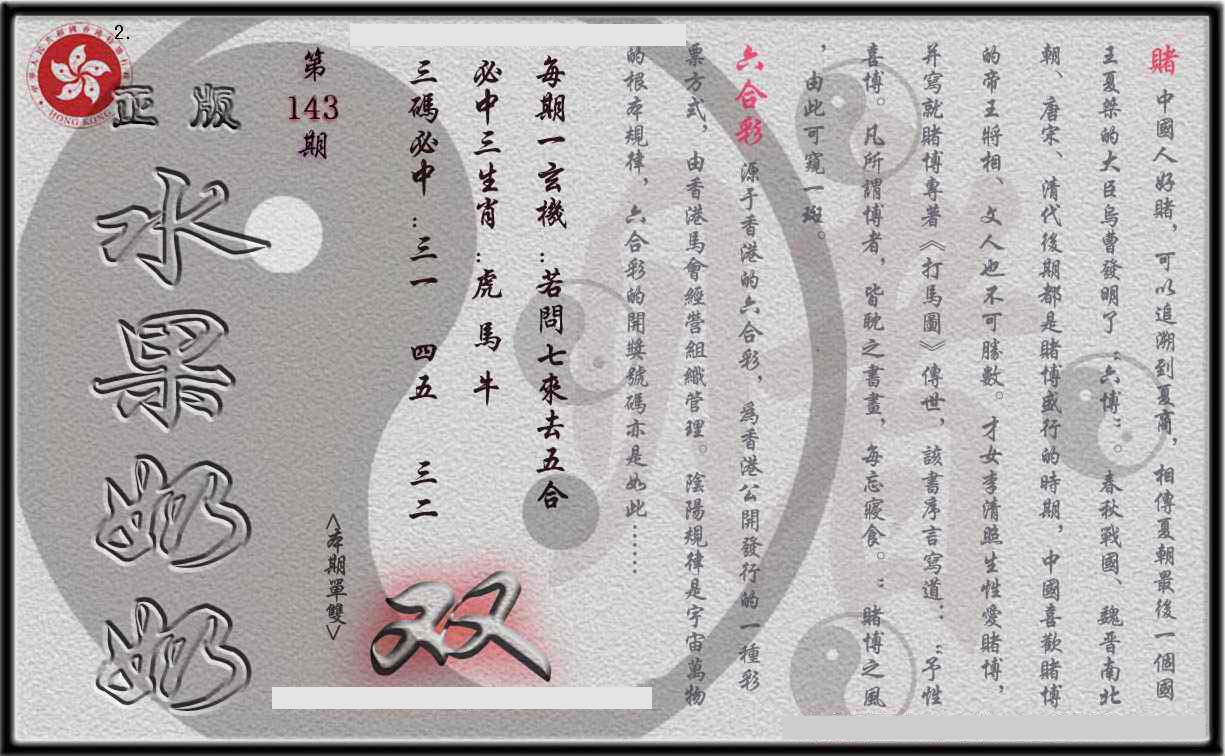 賭 中國人好賭，可以追溯到夏商，相傳夏朝最後一個國
王夏桀的大臣烏曹發明了“六博”。春秋戰國、魏晋南北
朝、唐宋、清代後期都是賭博盛行的時期，中國喜歡賭博
的帝王將相、文人也不可勝數。才女李清照生性愛賭博，
并寫就賭博專著《打馬圖》傳世，該書序言寫道：“予性
喜博。凡所謂博者，皆耽之書晝，每忘寢食。“賭博之風
，由此可窺一斑。
六合彩 源于香港的六合彩，為香港公開發行的一種彩
票方式，由香港馬會經營組織管理。陰陽規律是宇宙萬物
的根本規律，六合彩的開獎號碼亦是如此……
每期一玄機：若問七來去五合
必中三生肖：虎 馬 牛
三碼必中：三一 四五 三二
<本期單雙>
双
第
143
期
2.
正版
水果奶奶
HONG KONG